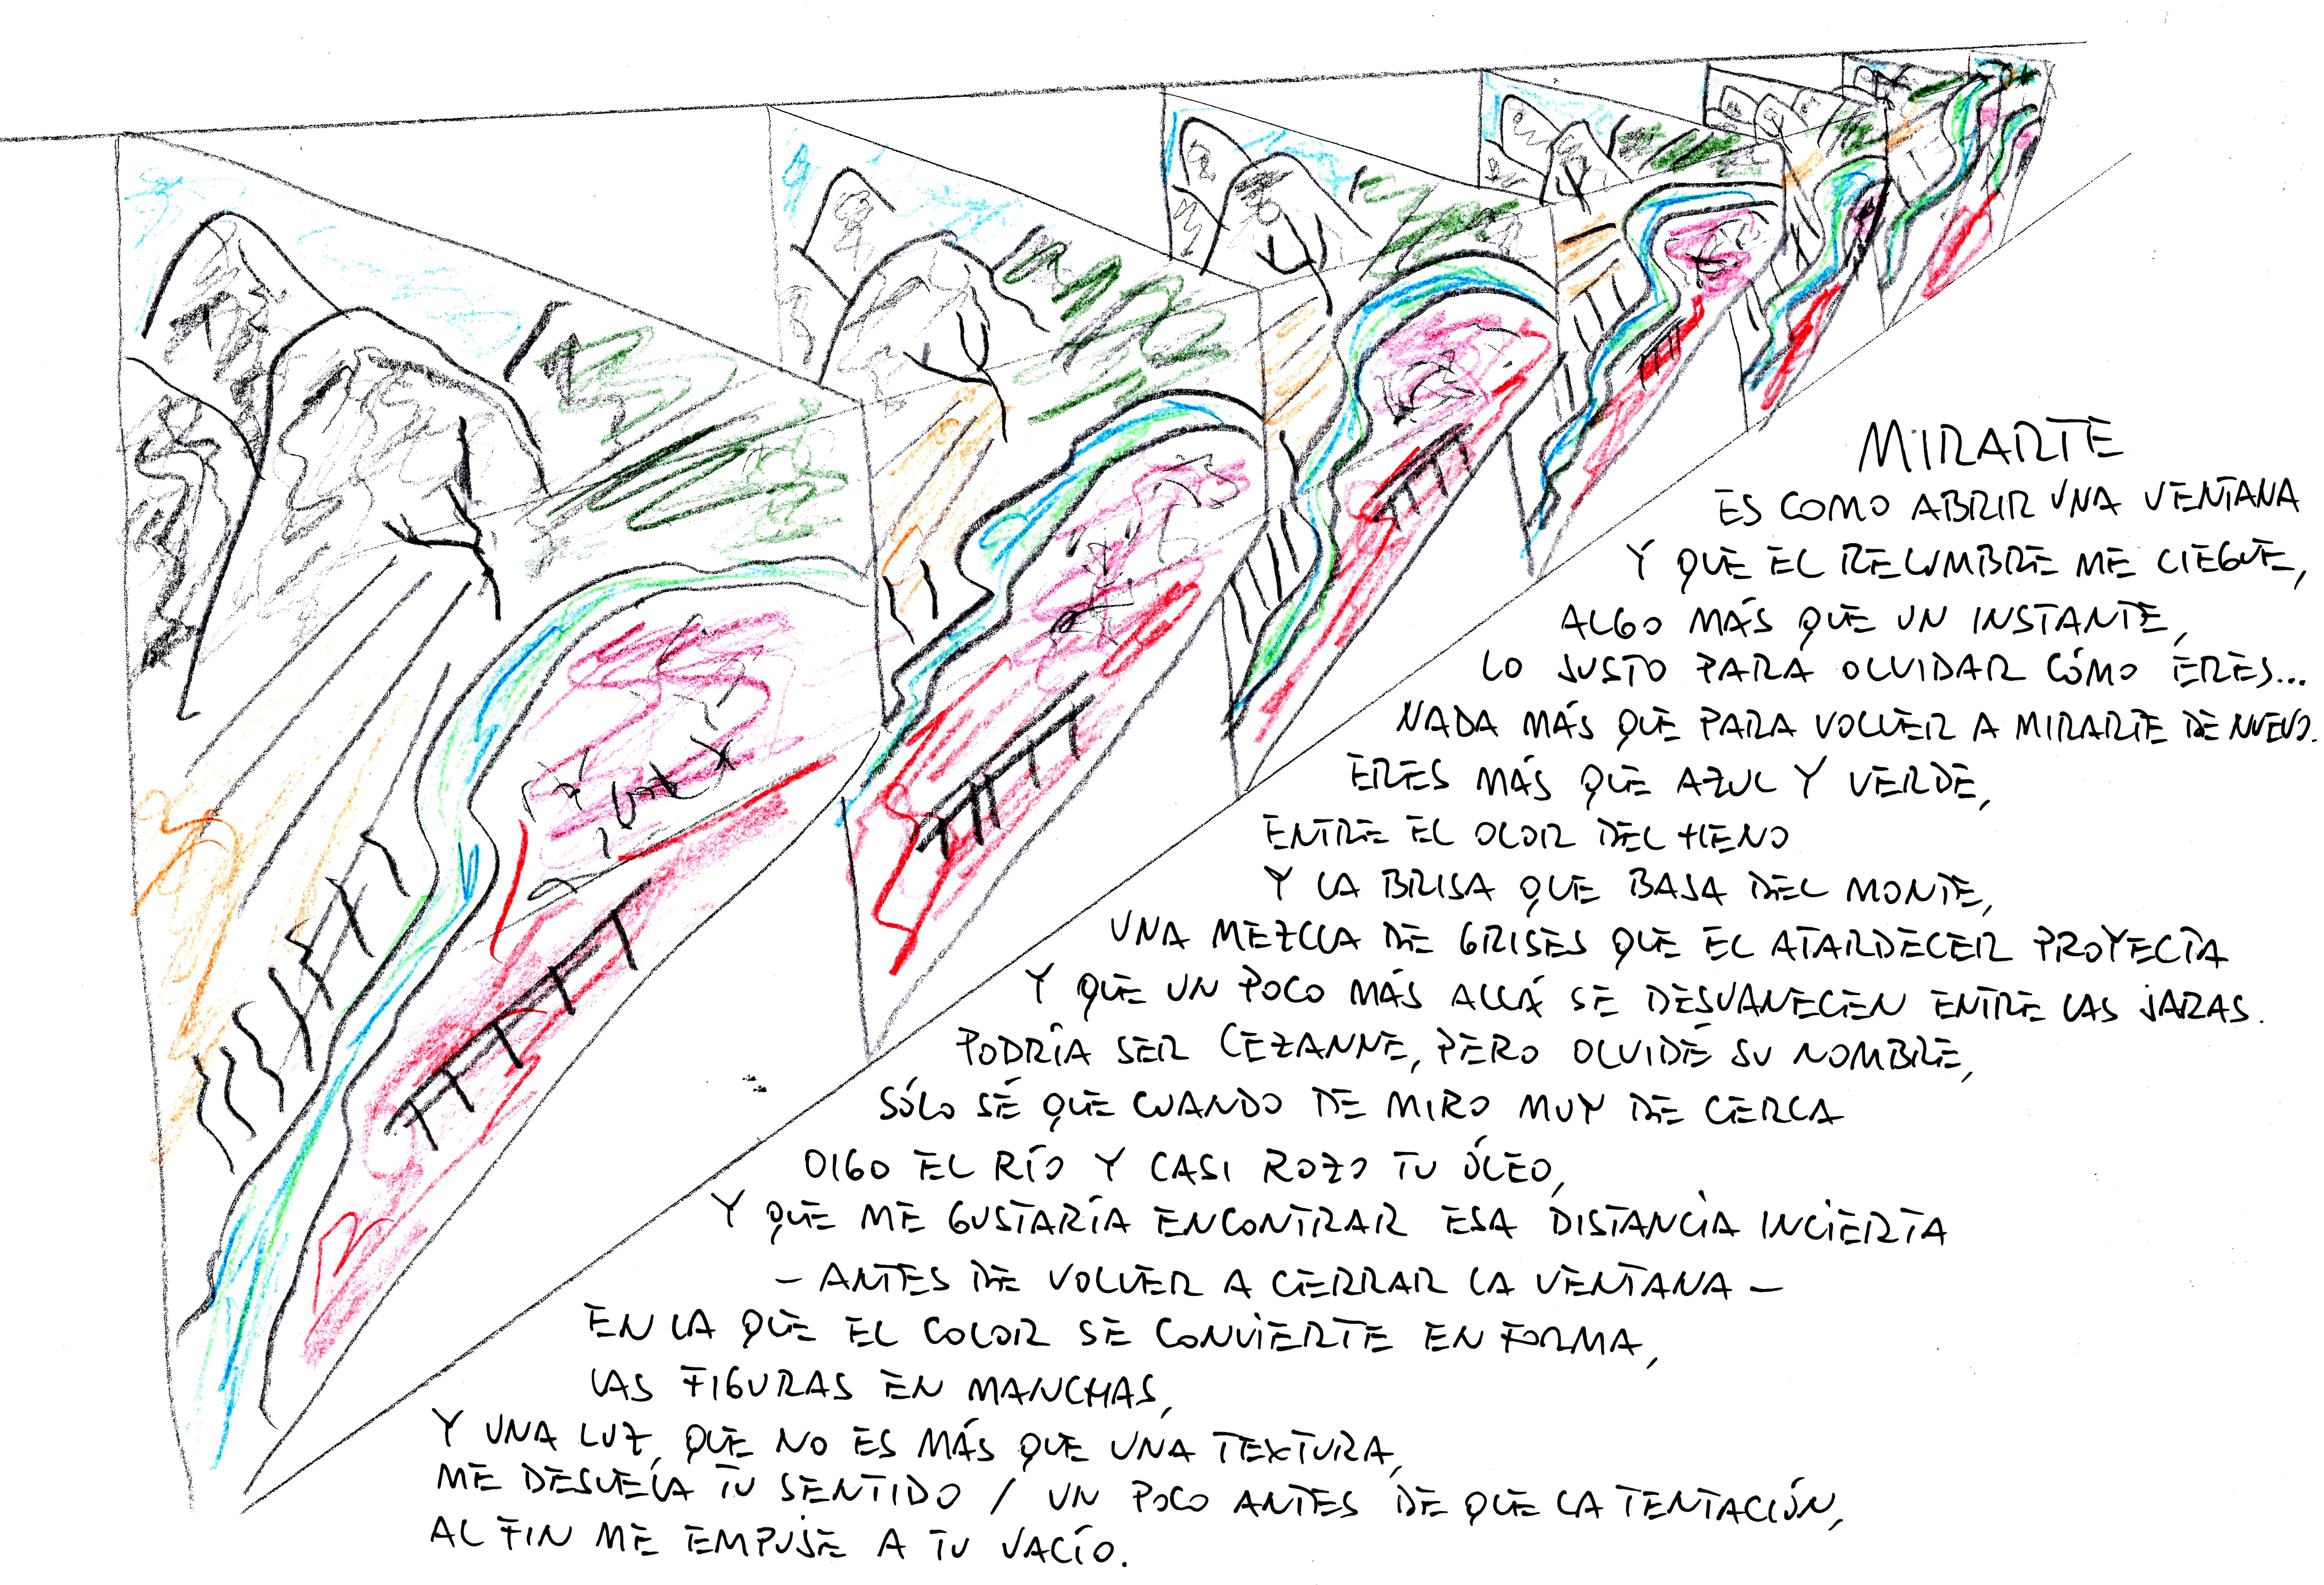 MIRARTE
ES COMO ABRIR UNA VENTANA
Y QUE EL RELUMBRE ME CIEGUE,
ALGO MÁS QUE UN INSTANTE,
LO JUSTO PARA OLVIDAR CÓMO ERES...
NADA MÁS QUE PARA VOLVER A MIRARTE DE NUEVO.
ERES MÁS QUE AZUL Y VERDE,
ENTRE EL OLOR DEL HENO
Y LA BRISA QUE BAJA DEL MONTE,
UNA MEZCLA DE GRISES QUE EL ATARDECER PROYECTA
Y QUE UN POCO MÁS ALLÁ SE DESVANECEN ENTRE LAS JARAS.
PODRÍA SER CEZANNE, PERO OLVIDÉ SU NOMBRE,
SÓLO SÉ QUE CUANDO DE MIRO MUY DE CERCA
OIGO EL RÍO Y CASI ROZO TU ÓLEO,
Y QUE ME GUSTARÍA ENCONTRAR ESA DISTANCIA INCIERTA
– ANTES DE VOLVER A CERRAR LA VENTANA –
EN LA QUE EL COLOR SE CONVIERTE EN FORMA,
LAS FIGURAS EN MANCHAS,
Y UNA LUZ, QUE NO ES MÁS QUE UNA TEXTURA,
ME DESVELA TU SENTIDO / UN POCO ANTES DE QUE LA TENTACIÓN,
AL FIN ME EMPUJE A TU VACÍO.